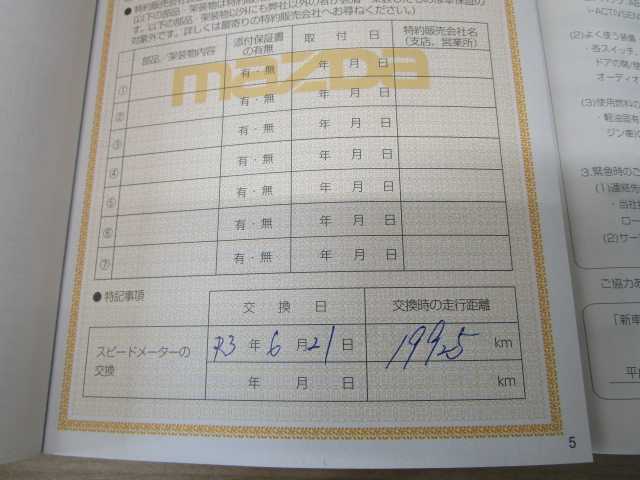 す。以下の部品・架装物以外にも弊社以外の者が架装
対象外です。詳しくは最寄りの特約販売会社へお尋ねください。)
部品/架装物内容 添付保証書の有無 取 付 日 特約販売会社名(支店、営業所)
① 有・無 年 月 日
② 有・無 年 月 日
③ 有・無 年 月 日
④ 有・無 年 月 日
⑤ 有・無 年 月 日
⑥ 有・無 年 月 日
⑦ 有・無 年 月 日
mazda
●特記事項
交 換 日 交換時の走行距離
スピードメーターの交換 R3 年 6 月 21 日 19925 km
年 月 日 km
5
(2)よく使う装備
・各スイッチ、
ドアの開/
オーディオ
(3)使用燃料の
・軽油固有
ジン車)の
3.緊急時のご
(1)連絡先
・当社
ロー
(2)サー
ご協力あ
「新車